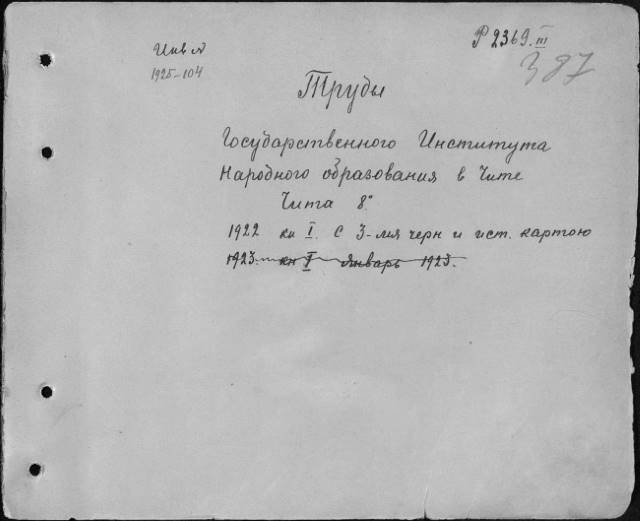 Инв №
1925-104
Р 2369.III
387
Труды
Государственного Института
Народного образования в Чите
Чита 8°
1922 кн I. С 3-мя черн и ист. картою
1923. кн I январь 1923.